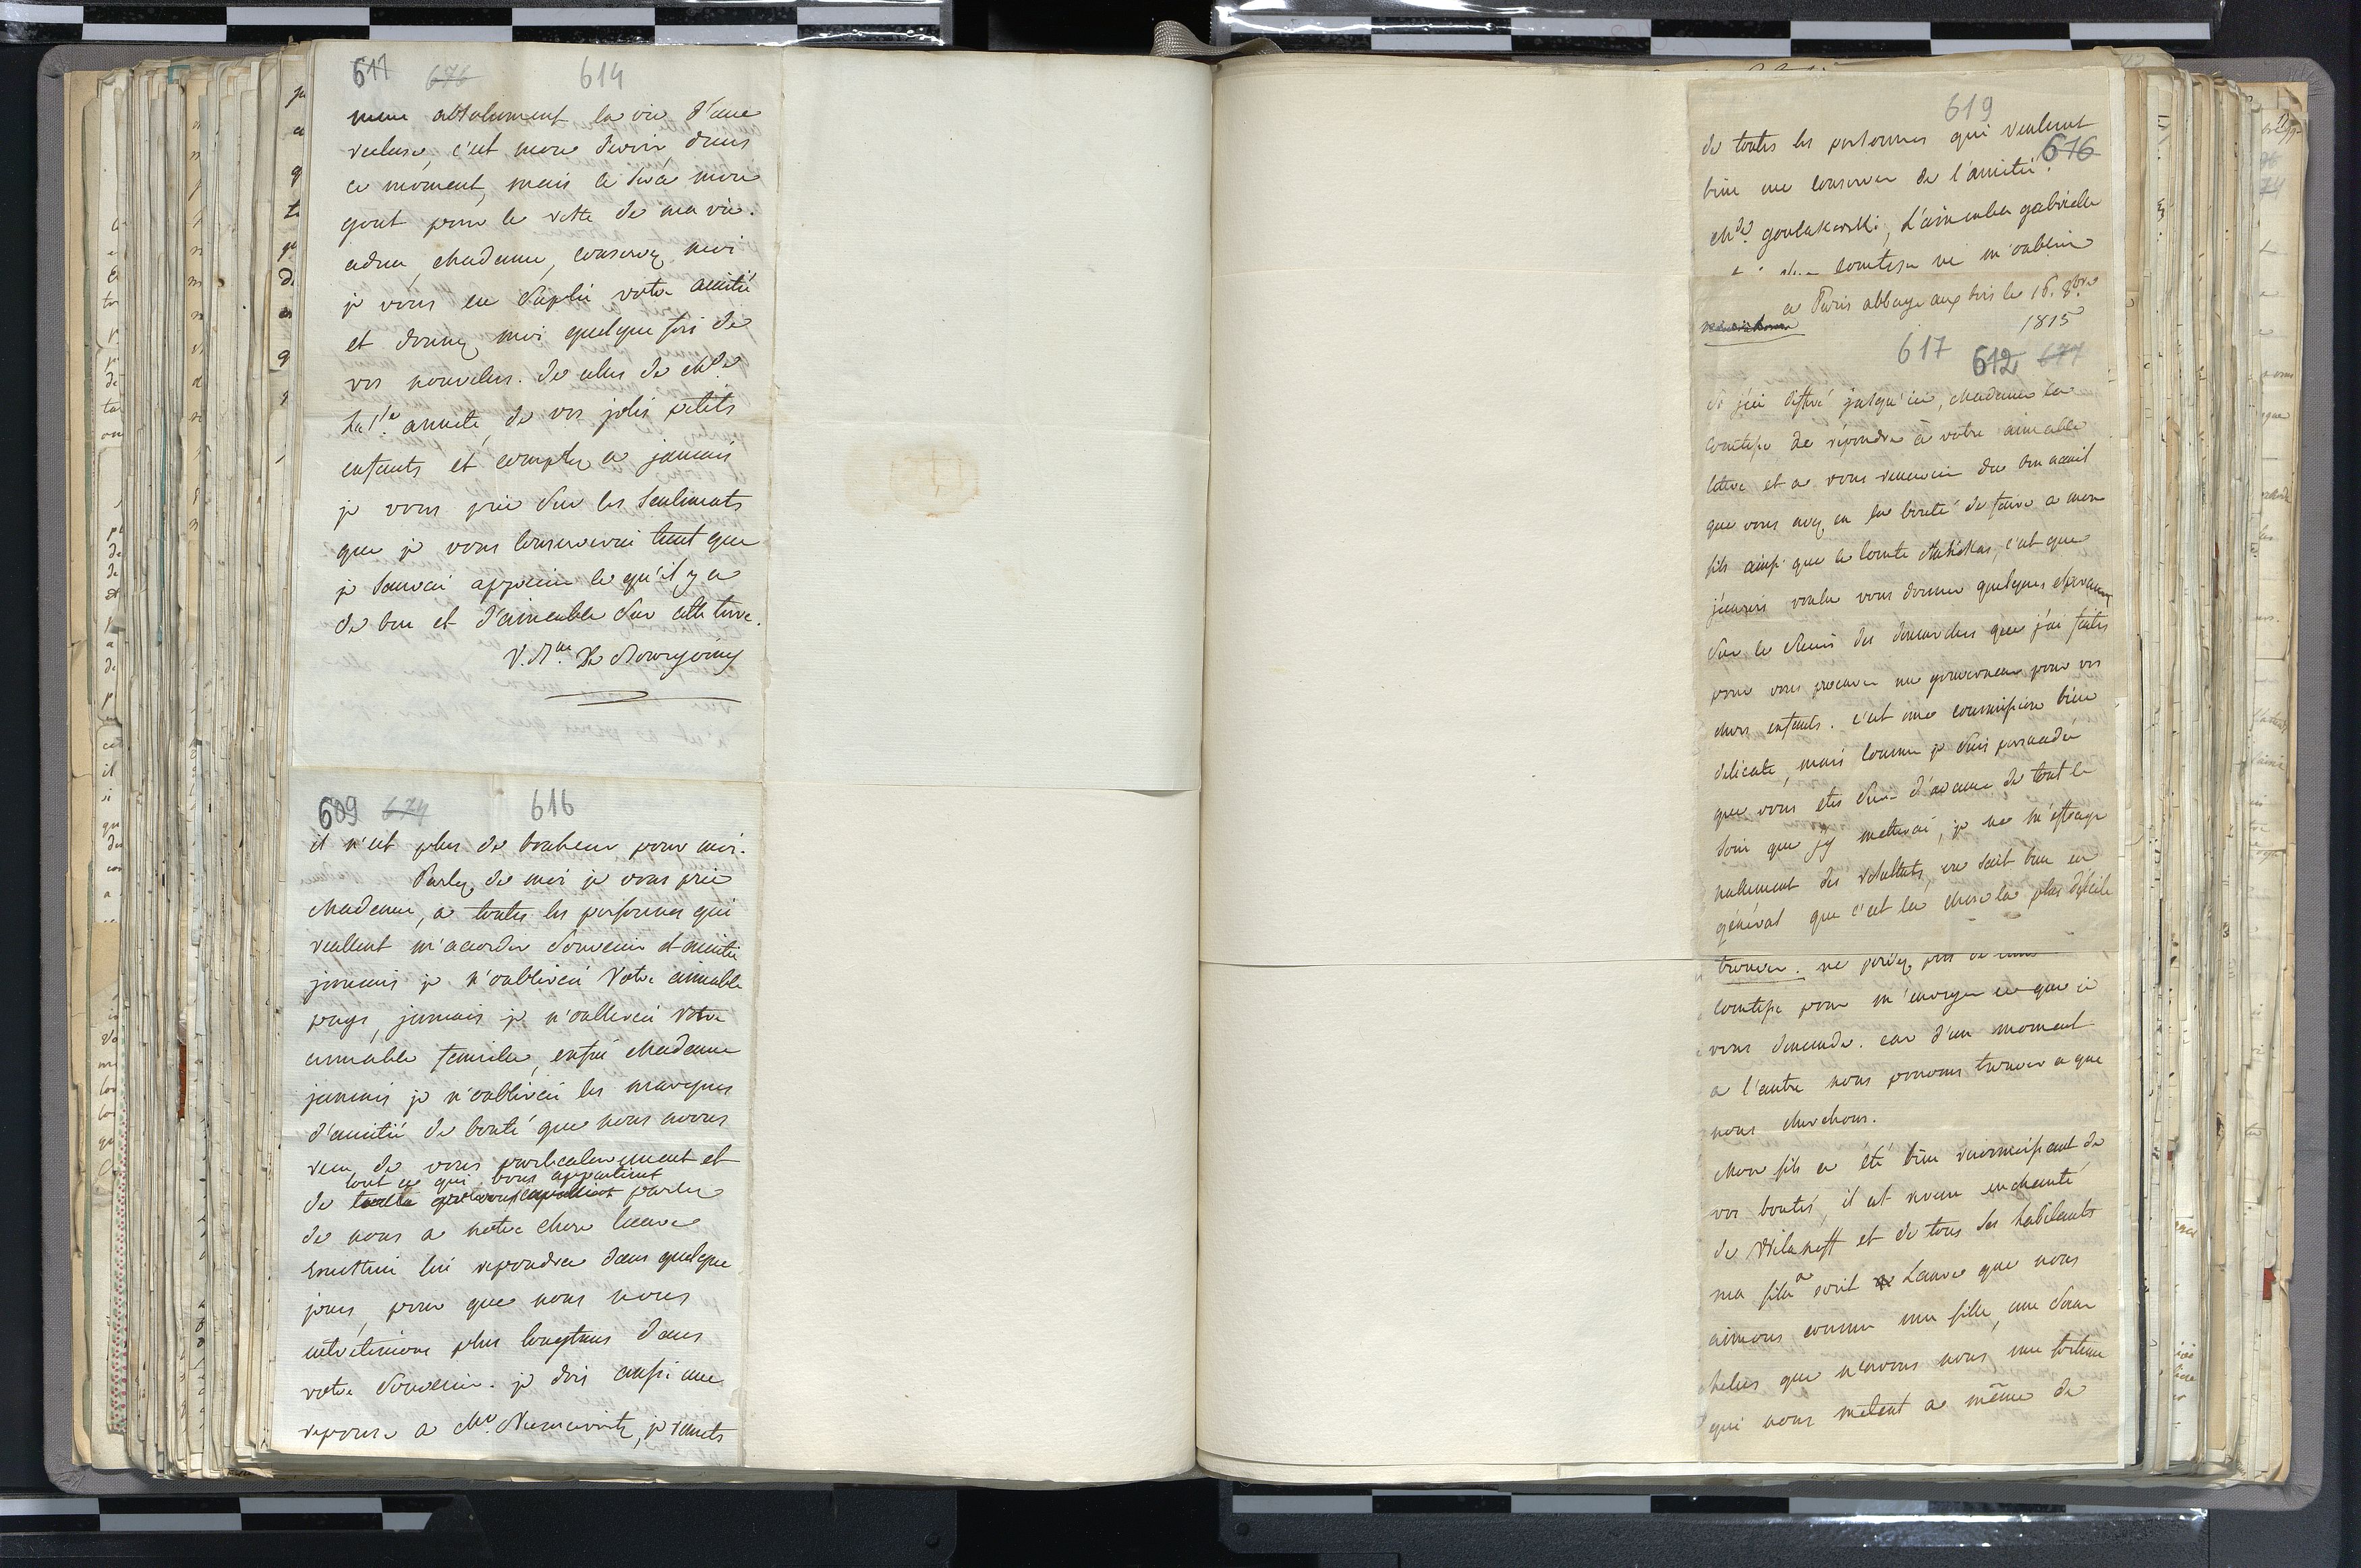 611 676 614
mene absolument la vie d'une
recluse, c'est mon devoir dans
ce moment, mais ce sera mon
gout pour le reste de ma vie.
adieu, Madame, conservez moi
je vous en suplie votre amitié
et donnez moi quelque fois de
vos nouvelles. de celles de Md.e
annete, de vos jolis petits
enfants et comptez a jamais
je vous prie sur les sentiments
que je vous conserverai tant que
je saurai apprecier ce qu'il y a
de bon et d'aimable sur cette terre.
De Bourgoing
609 674 616
il n'est plus de bonheur pour moi.
Parlez de moi je vous prie
Madame, a toutes les personnes qui
veullent m'acorder souvenir et amitié
jamais je n'oublirai votre aimable
pays, jamais je n'oublirai votre
aimable famille, enfin Madame
jamais je n'oublirai les marques
d'amitié de bonté que nous avons
recu de vous particulierement et
tout ce qui vous appartient
de parlez
de nous a notre chere Laure
Ernestine lui repondra dans quelque
jours, pour que nous nous
entretenions plus longtems dans
votre souvenir. je dois aussi une
reponse a Mr. Niemcewitz, je remets
619
de toutes les personnes qui veulent
676
bien me conserver de l'amitié.
Md.e goutakowski, L'aimable gabrielle
comtesse ne m'oublie
a Paris abbaye aux bois le 16. 8bre
1815
617 612 677
si j'ai différé jusqu'ici, Madame la
comtesse de répondre à votre aimable
lettre et a vous remercier du bon acceuil
que vous avez eu la bonté de faire a mon
fils ainsi que le comte, c'est que
j'aurois voulu vous donner quelques esperances
sur le succès des demandes que j'ai faites
pour vous procurer un gouverneur pour vos
chers enfants. c'est une commission bien
delicate, mais comme je suis persuadée
que vous etes sure d'avance de tout le
soin que j'y metterai, je ne m'effraye
nulement des resultats, on sait bien en
général que c'est la chose la plus dificile
trouver. ne perdez pas de tems
comtesse pour m'envoyer ce que je
vous demande. car d'un moment
a l'autre nous pouvons trouver ce que
nous cherchons.
Mon fils a été bien reconnoissant de
vos bontés, il est revenu enchanté
de Wilanoff et de tous ses habitants
ma fille a ecrit a Laure que nous
aimons comme une fille, une sœur
helas que n'avons nous une fortune
qui nous metent a même de